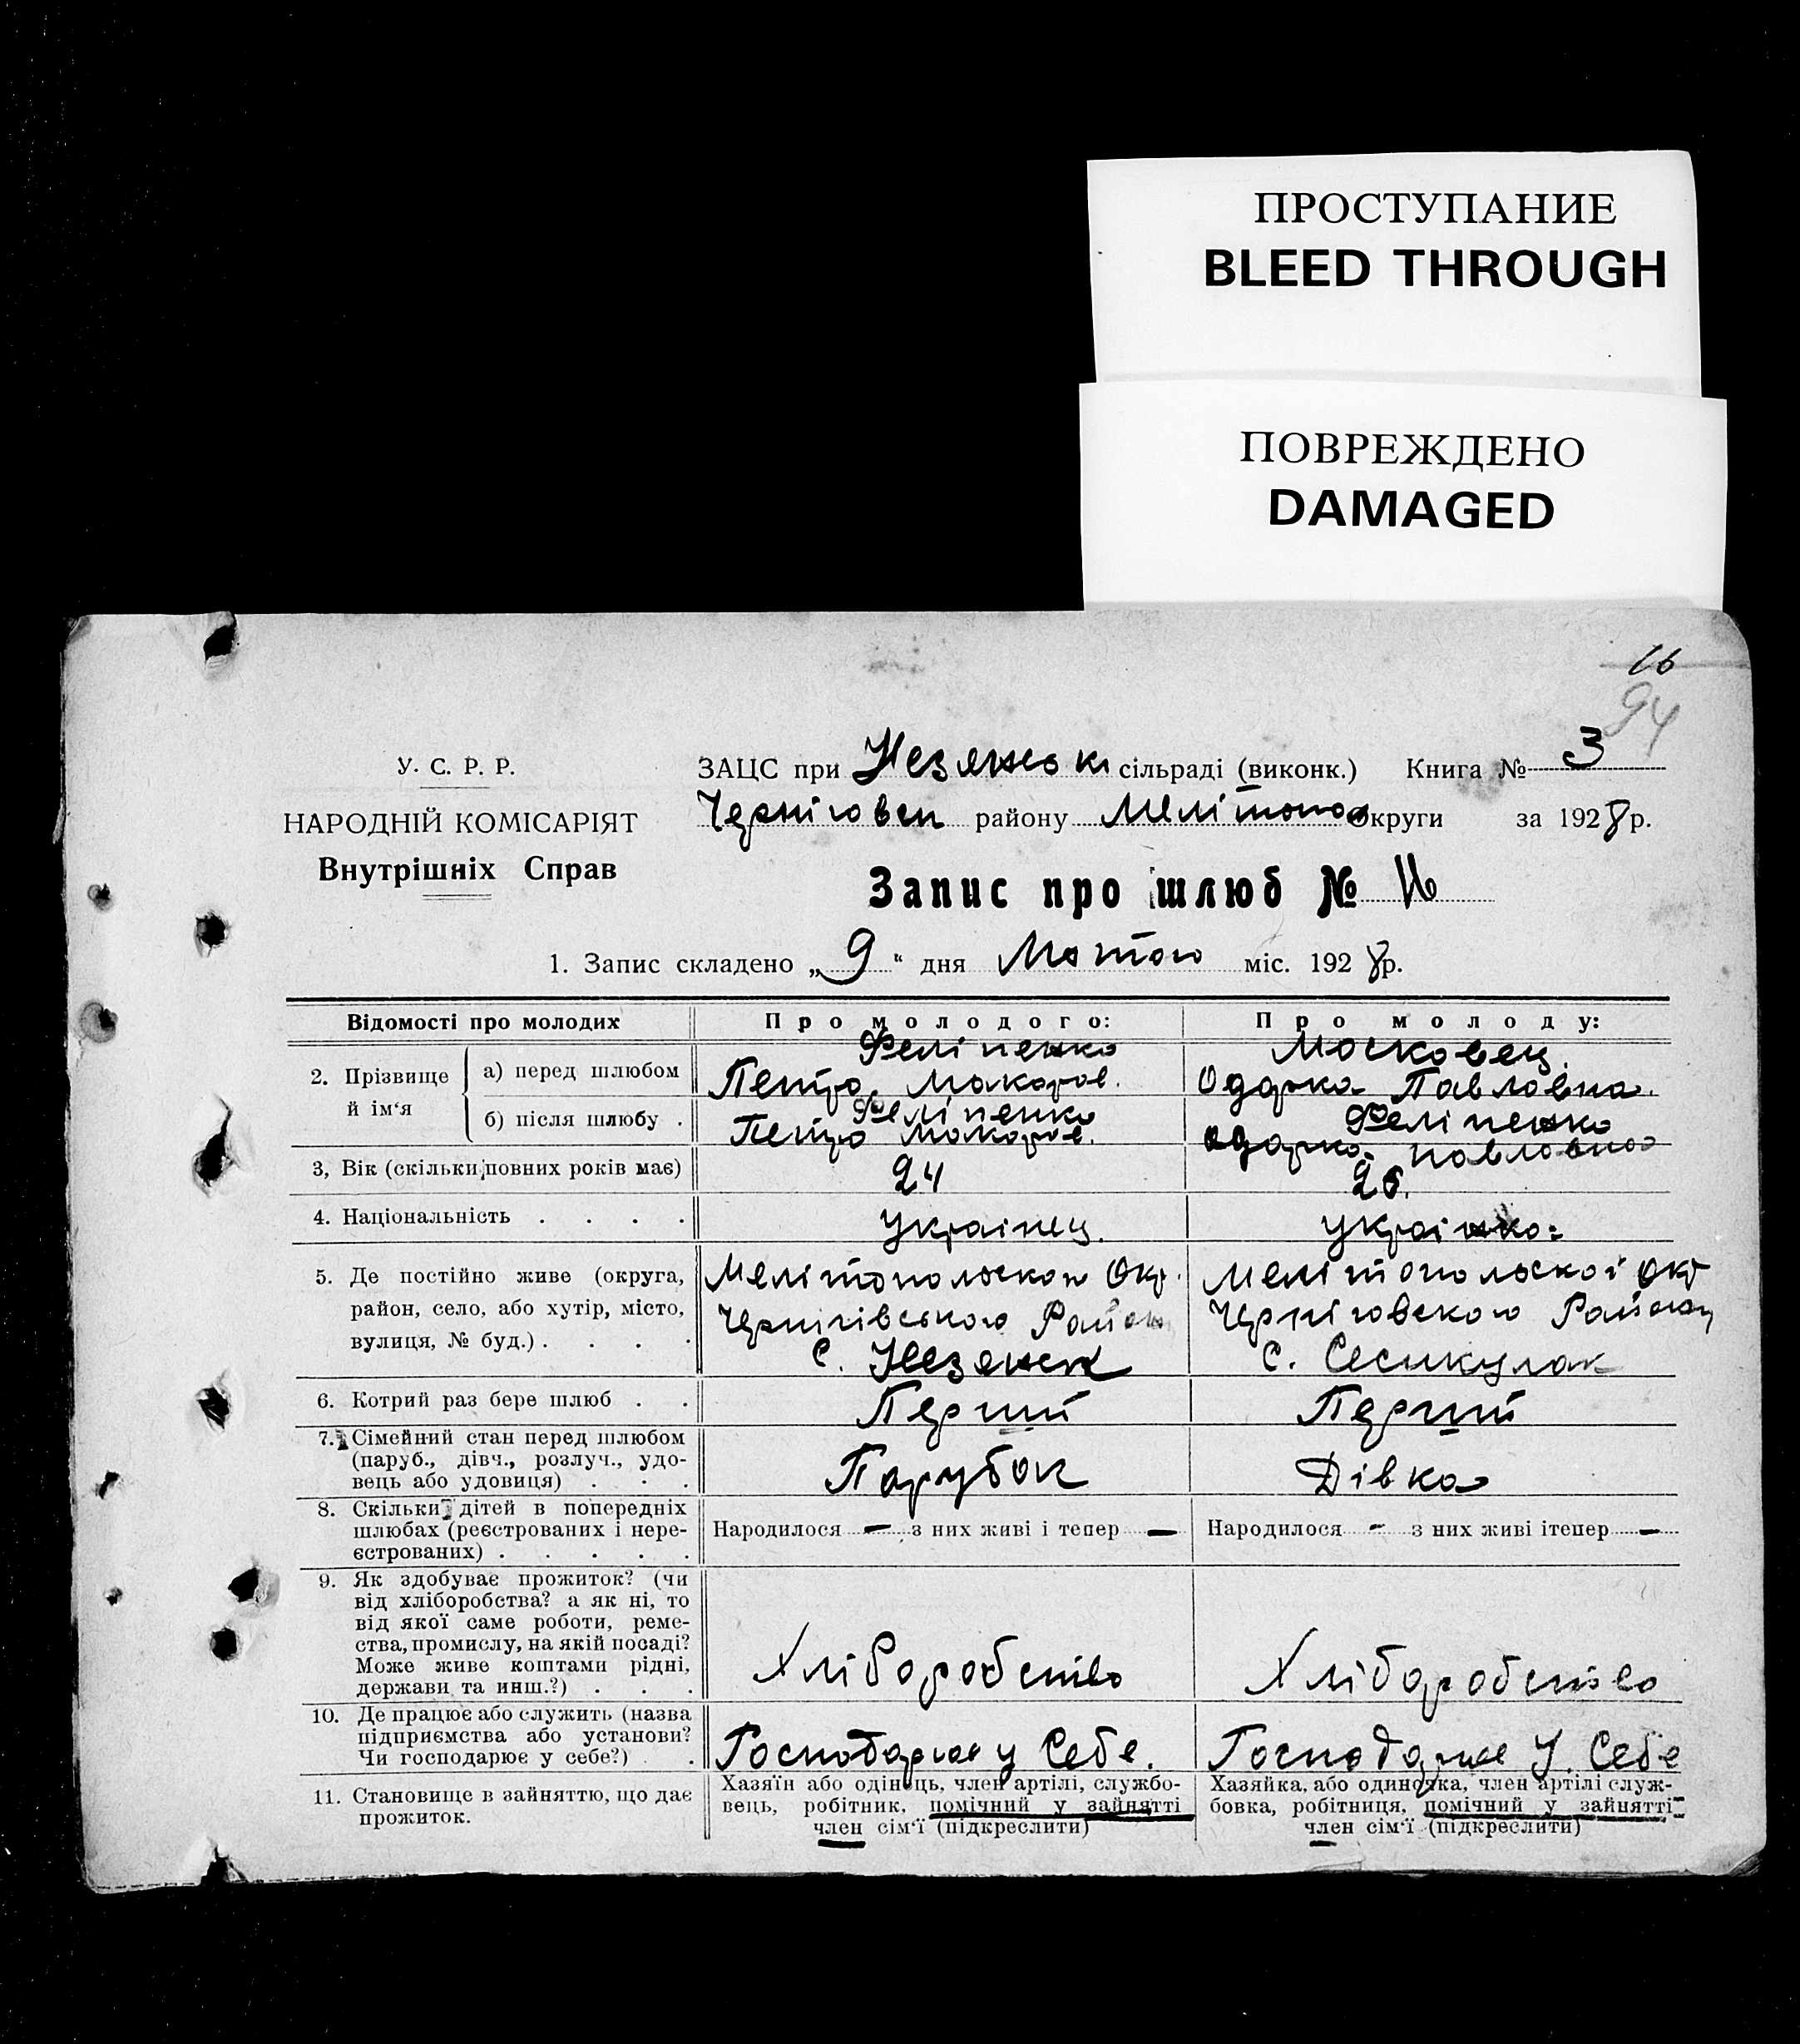 ПРОСТУПАНИЕ
BLEED THROUGH
ПОВРЕЖДЕНО
DAMAGED
16
94
У. С. Р. Р.
НАРОДНІЙ КОМІСАРІЯТ
Внутрішніх Справ
ЗАЦС при сільраді (виконк.) Книга № 3
району Мелітопо округи за 1928 р.
Запис про шлюб №
1. Запис складено „ 9 “ дня міс. 1928 р.
Відомості про молодих
Про молодого:
Про молоду:
2. Прізвище й ім‘я
а) перед шлюбом
Феліпенко
Петро Макаров.
Московец.
Одарка Павловна.
б) після шлюбу .
Феліпенко
Петро Макаров.
Феліпенко
Одарка Павловна
3, Вік (скільки повних років має)
24
26.
4. Національність . . . .
Украінец.
Украінка
5. Де постійно живе (округа,
район, село, або хутір, місто,
вулиця, № буд.) . . . .
Мелітопольскои Окр.
Чернігівського Району
С.
Мелітопольскоі Окр
Черніговского Району
С. Сесикулак
6. Котрий раз бере шлюб . .
Перший
Перший
7. Сімейний стан перед шлюбом
(паруб., дівч., розлуч., удо-
вець або удовиця) . . .
Парубок
Дівка
8. Скільки дітей в попередніх
шлюбах (реєстрованих і нере-
єстрованих) . . . . .
Народилося — з них живі і тепер —
Народилося - з них живі ітепер —
9. Як здобуває прожиток? (чи
від хліборобства? а як ні, то
від якої саме роботи, реме-
ства, промислу, на якій посаді?
Може живе коштами рідні,
держави та инш.?) . . .
Хліборобство
Хліборобство
10. Де працює або служить (назва
підприємства або установи?
Чи господарює у себе?) . .
Господарює у Себе.
Господарює У. Себе
11. Становище в зайняттю, що дає
прожиток.
Хазяїн або одінець, член артілі, службо-
вець, робітник, помічний у зайнятті
член сім‘ї (підкреслити)
Хазяйка, або одиночка, член артілі служ-
бовка, робітниця, помічний у зайнятті
член сім‘ї (підкреслити)